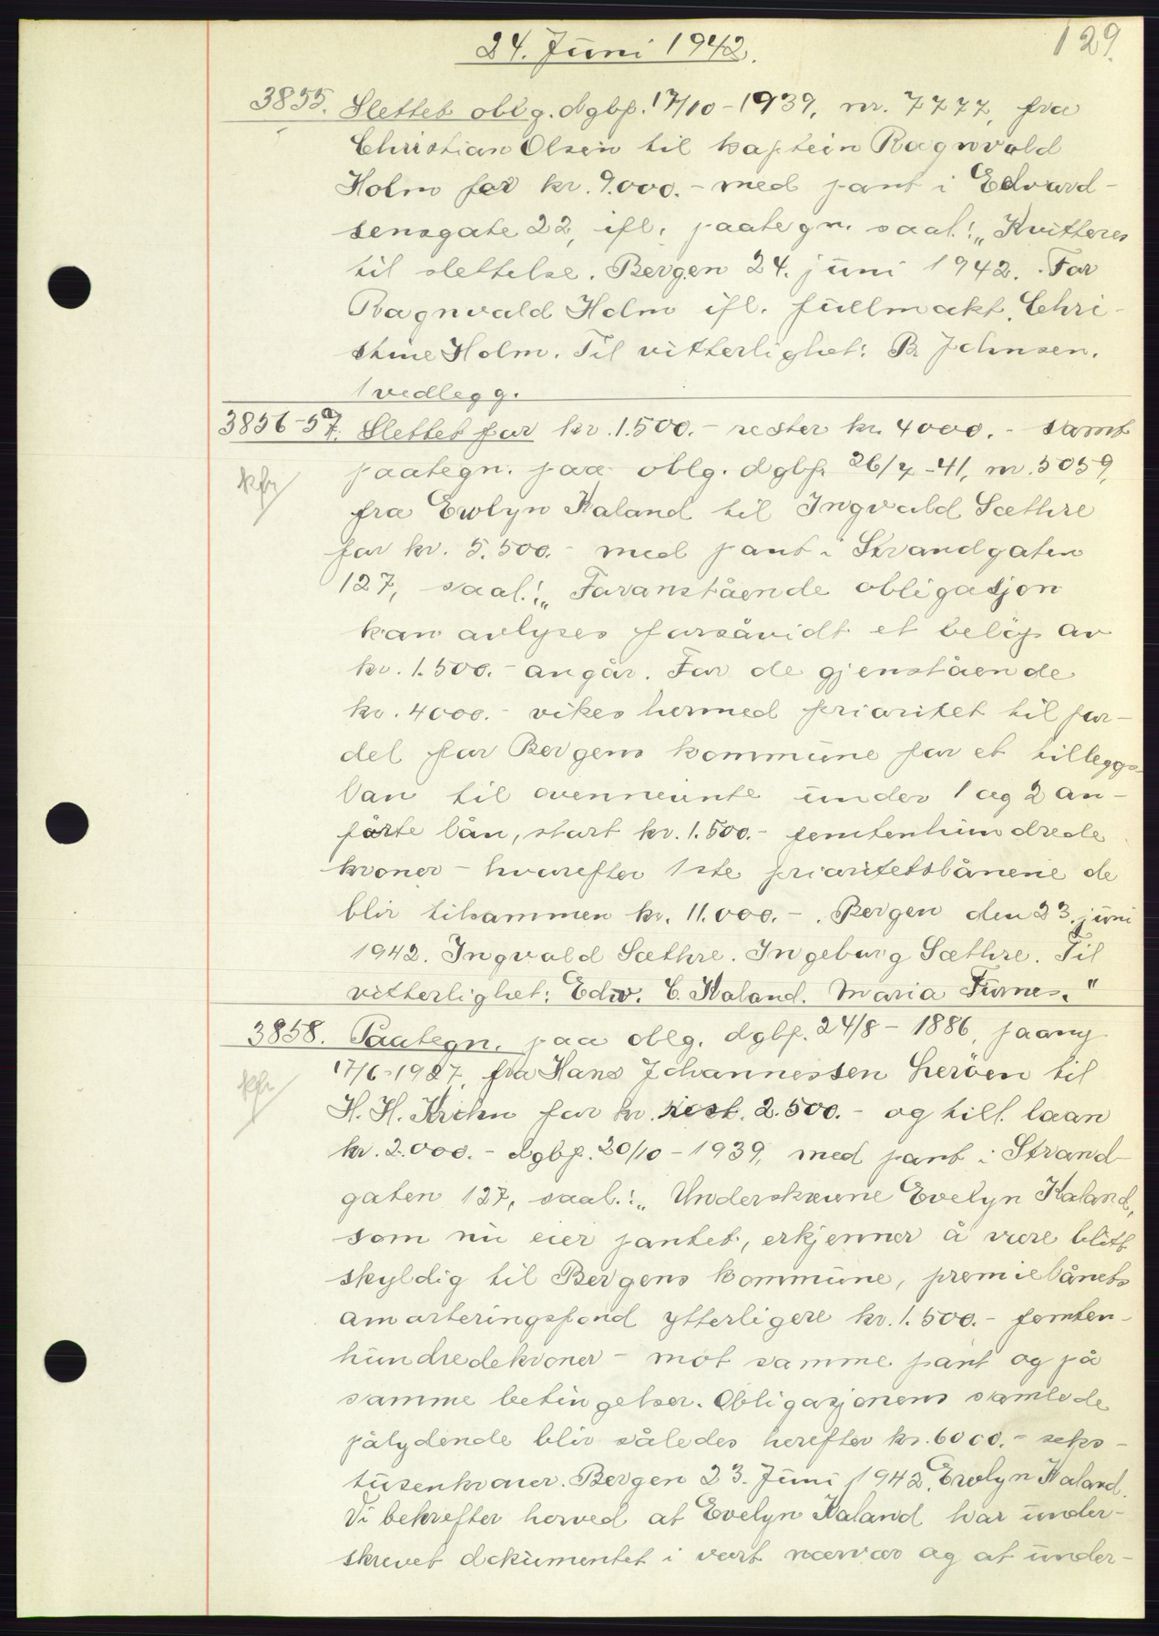 129.
24. Juni 1942.
3855. Slettet oblg. dgbf. 17/10-1939, nr. 7777, fra
Christian Olsen til kaptein Ragnvald
Holm for kr. 9.000.- med pant i Edvard-
sensgate 22, ifl. paategn. saal.: „Kvitteres
til slettelse. Bergen 24. juni 1942. For
Ragnvald Holm ifl. fullmakt. Chri-
stine Holm. Til vitterlighet: B. Johnsen.
1 vedlegg.
3856-57. Slettet for kr. 1.500.- rester kr. 4000.- samt
paategn. paa oblg. dgbf. 26/7-41, nr. 5059,
kfr
fra Evelyn Kaland til Ingvald Sæthre
for kr. 5.500.- med pant i Strandgaten
127, saal.: „Foranstående obligasjon
kan avlyses forsåvidt et beløp av
kr. 1.500.- angår. For de gjenstående
kr. 4000.- vikes hermed prioritet til for-
del for Bergens kommune for et tileggs-
lån til ovennevnte under 1 og 2 an-
førte lån, stort kr. 1.500.- femtenhundrede
kroner - hvorefter 1ste prioritetslånene de
blir tilsammen kr. 11.000.-. Bergen den 23. juni
1942. Ingvald Sæthre. Ingeborg Sæthre. Til
vitterlighet: Edw. C. Kaland. Maria Furnes."
3858. Paategn. paa oblg. dgbf. 24/8-1886, paany
17/6-1927, fra Hans Johannessen Herøen til
kfr
H. H. Krohn for kr. rest. 2.500.- og till. laan
kr. 2.000.- dgbf. 20/10-1939, med pant i Strand-
gaten 127, saal.: „Underskrevne Evelyn Kaland,
som nu eier pantet, erkjenner å være blitt
skyldig til Bergens kommune, premielånets
amorteringsfond ytterligere kr. 1.500.- femten-
hundredekroner - mot samme pant og på
samme betingelser. Obligasjonens samlede
pålydende blir således herefter kr. 6000.- seks-
tusenkroner. Bergen 23. Juni 1942. Evelyn Kaland.
Vi bekrefter herved at Evelyn Kaland har under-
skrevet dokumentet i vort nærvær og at under-